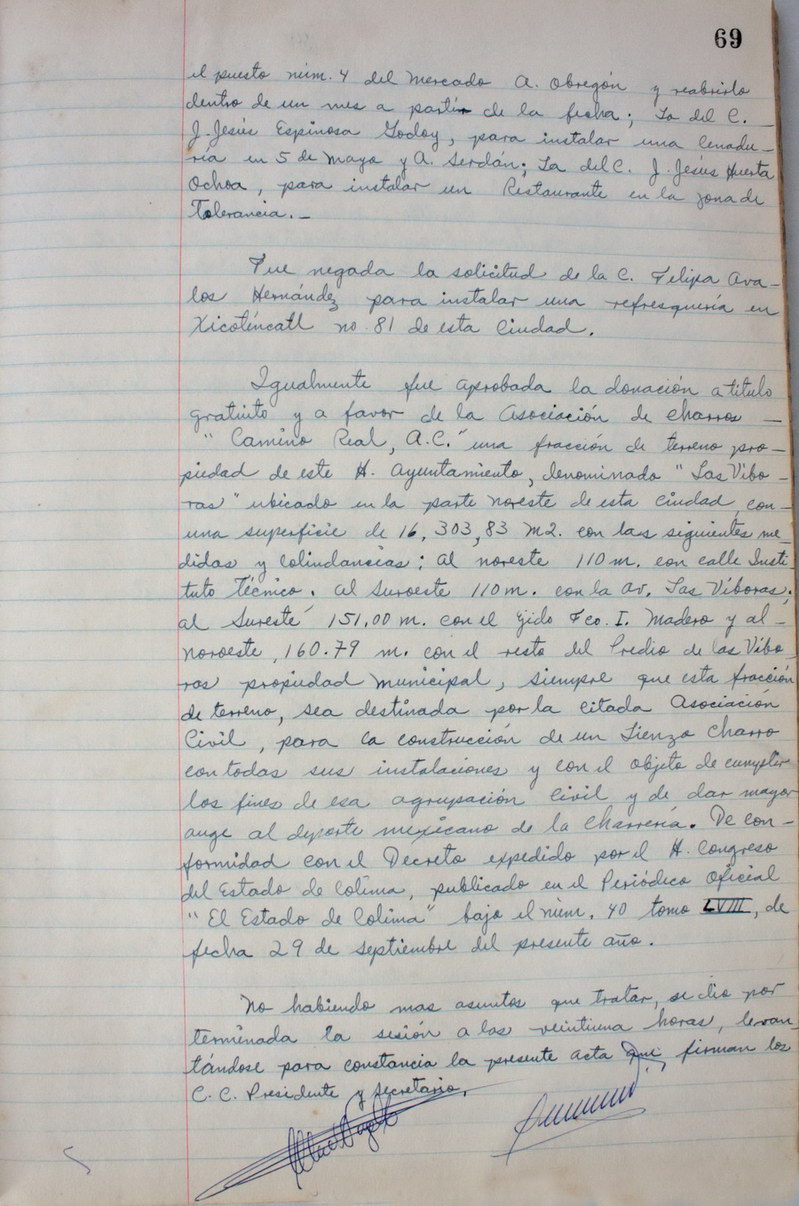 69
el puesto núm. 4 del Mercado A. Obregón y reabrirlo
dentro de un mes a partir de la fecha; La del C.
J. Jesús Espinosa Godoy, para instalar una Cenadu-
ría en 5 de Mayo y A. Serdán; La del C. J. Jesús Huerta
Ochoa, para instalar un Restaurante en la zona de
Tolerancia._
Fue negada la solicitud de la C. Felipa Ava-
los Hernández para instalar una refresquería en
Xicoténcatl no. 81 de esta Ciudad.
Igualmente fue aprobada la donación a titulo
gratuito y a favor de la Asociación de charros _
"Camino Real, A.C." una fracción de terreno pro-
piedad de este H. Ayuntamiento, denominado "Las Vibo-
ras" ubicado en la parte noreste de esta Ciudad, con-
una superficie de 16,303,83 M2. con las siguientes me-
didas y colindancias: al noreste 110 m. con calle Insti-
tuto Técnico. al Suroeste 110 m. con la Av. Las Víboras.
al Sureste 151.00 m. con el Ejido Fco. I. Madero y al -
noroeste, 160.79 m. con el resto del Predio de las Vibo-
ras propiedad Municipal, siempre que esta fracción
de terreno, sea destinada por la citada Asociación
Civil, para la construcción de un Lienzo Charro
con todas sus instalaciones y con el objeto de cumplir
los fines de esa agrupación Civil y de dar mayor
auge al deporte mexicano de la Charrería. De con-
formidad con el Decreto expedido por el H. Congreso
del Estado de Colima, publicado en el Periódico Oficial
"El Estado de Colima" bajo el núm. 40 tomo LVIII, de
fecha 29 de septiembre del presente año.
No habiendo mas asuntos que tratar, se dio por
terminada la sesión a las veintiuna horas, levan-
tándose para constancia la presente acta que, firman los
C.C. Presidente y Secretario.